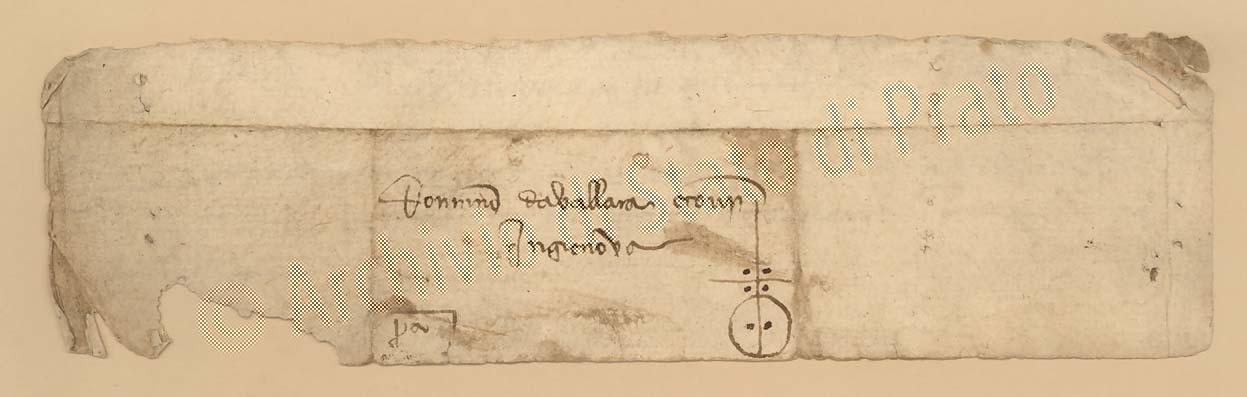 davallara e conp
Ingienova
pa
© Archivio di Stato di Prato